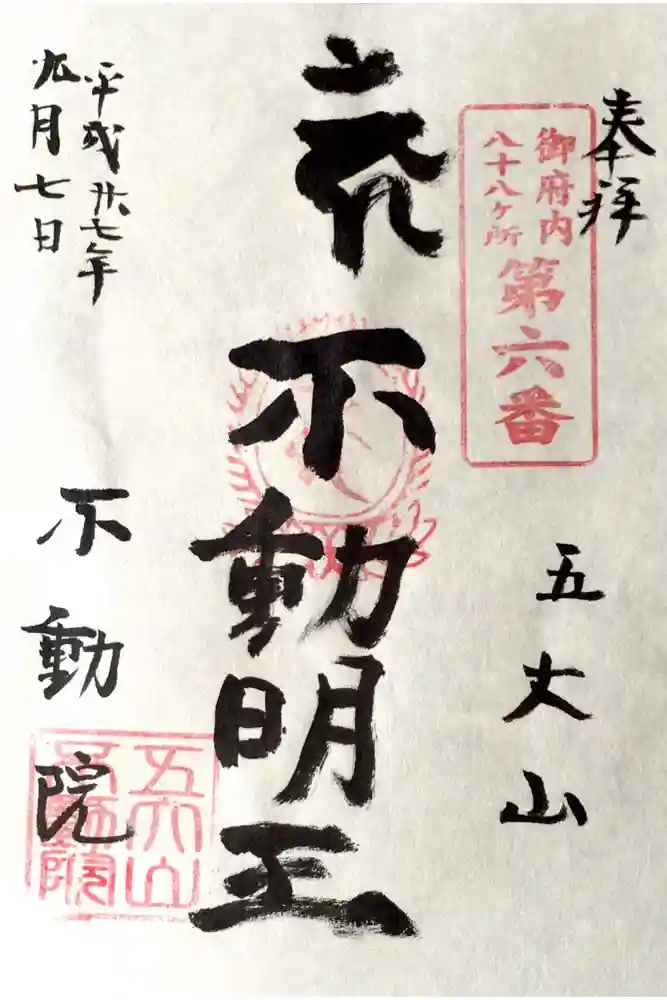 奉拝
御府内
八十八ケ所
第六番
五大山
不動明王
平成廿七年
九月七日
不動院
五大山
不動院